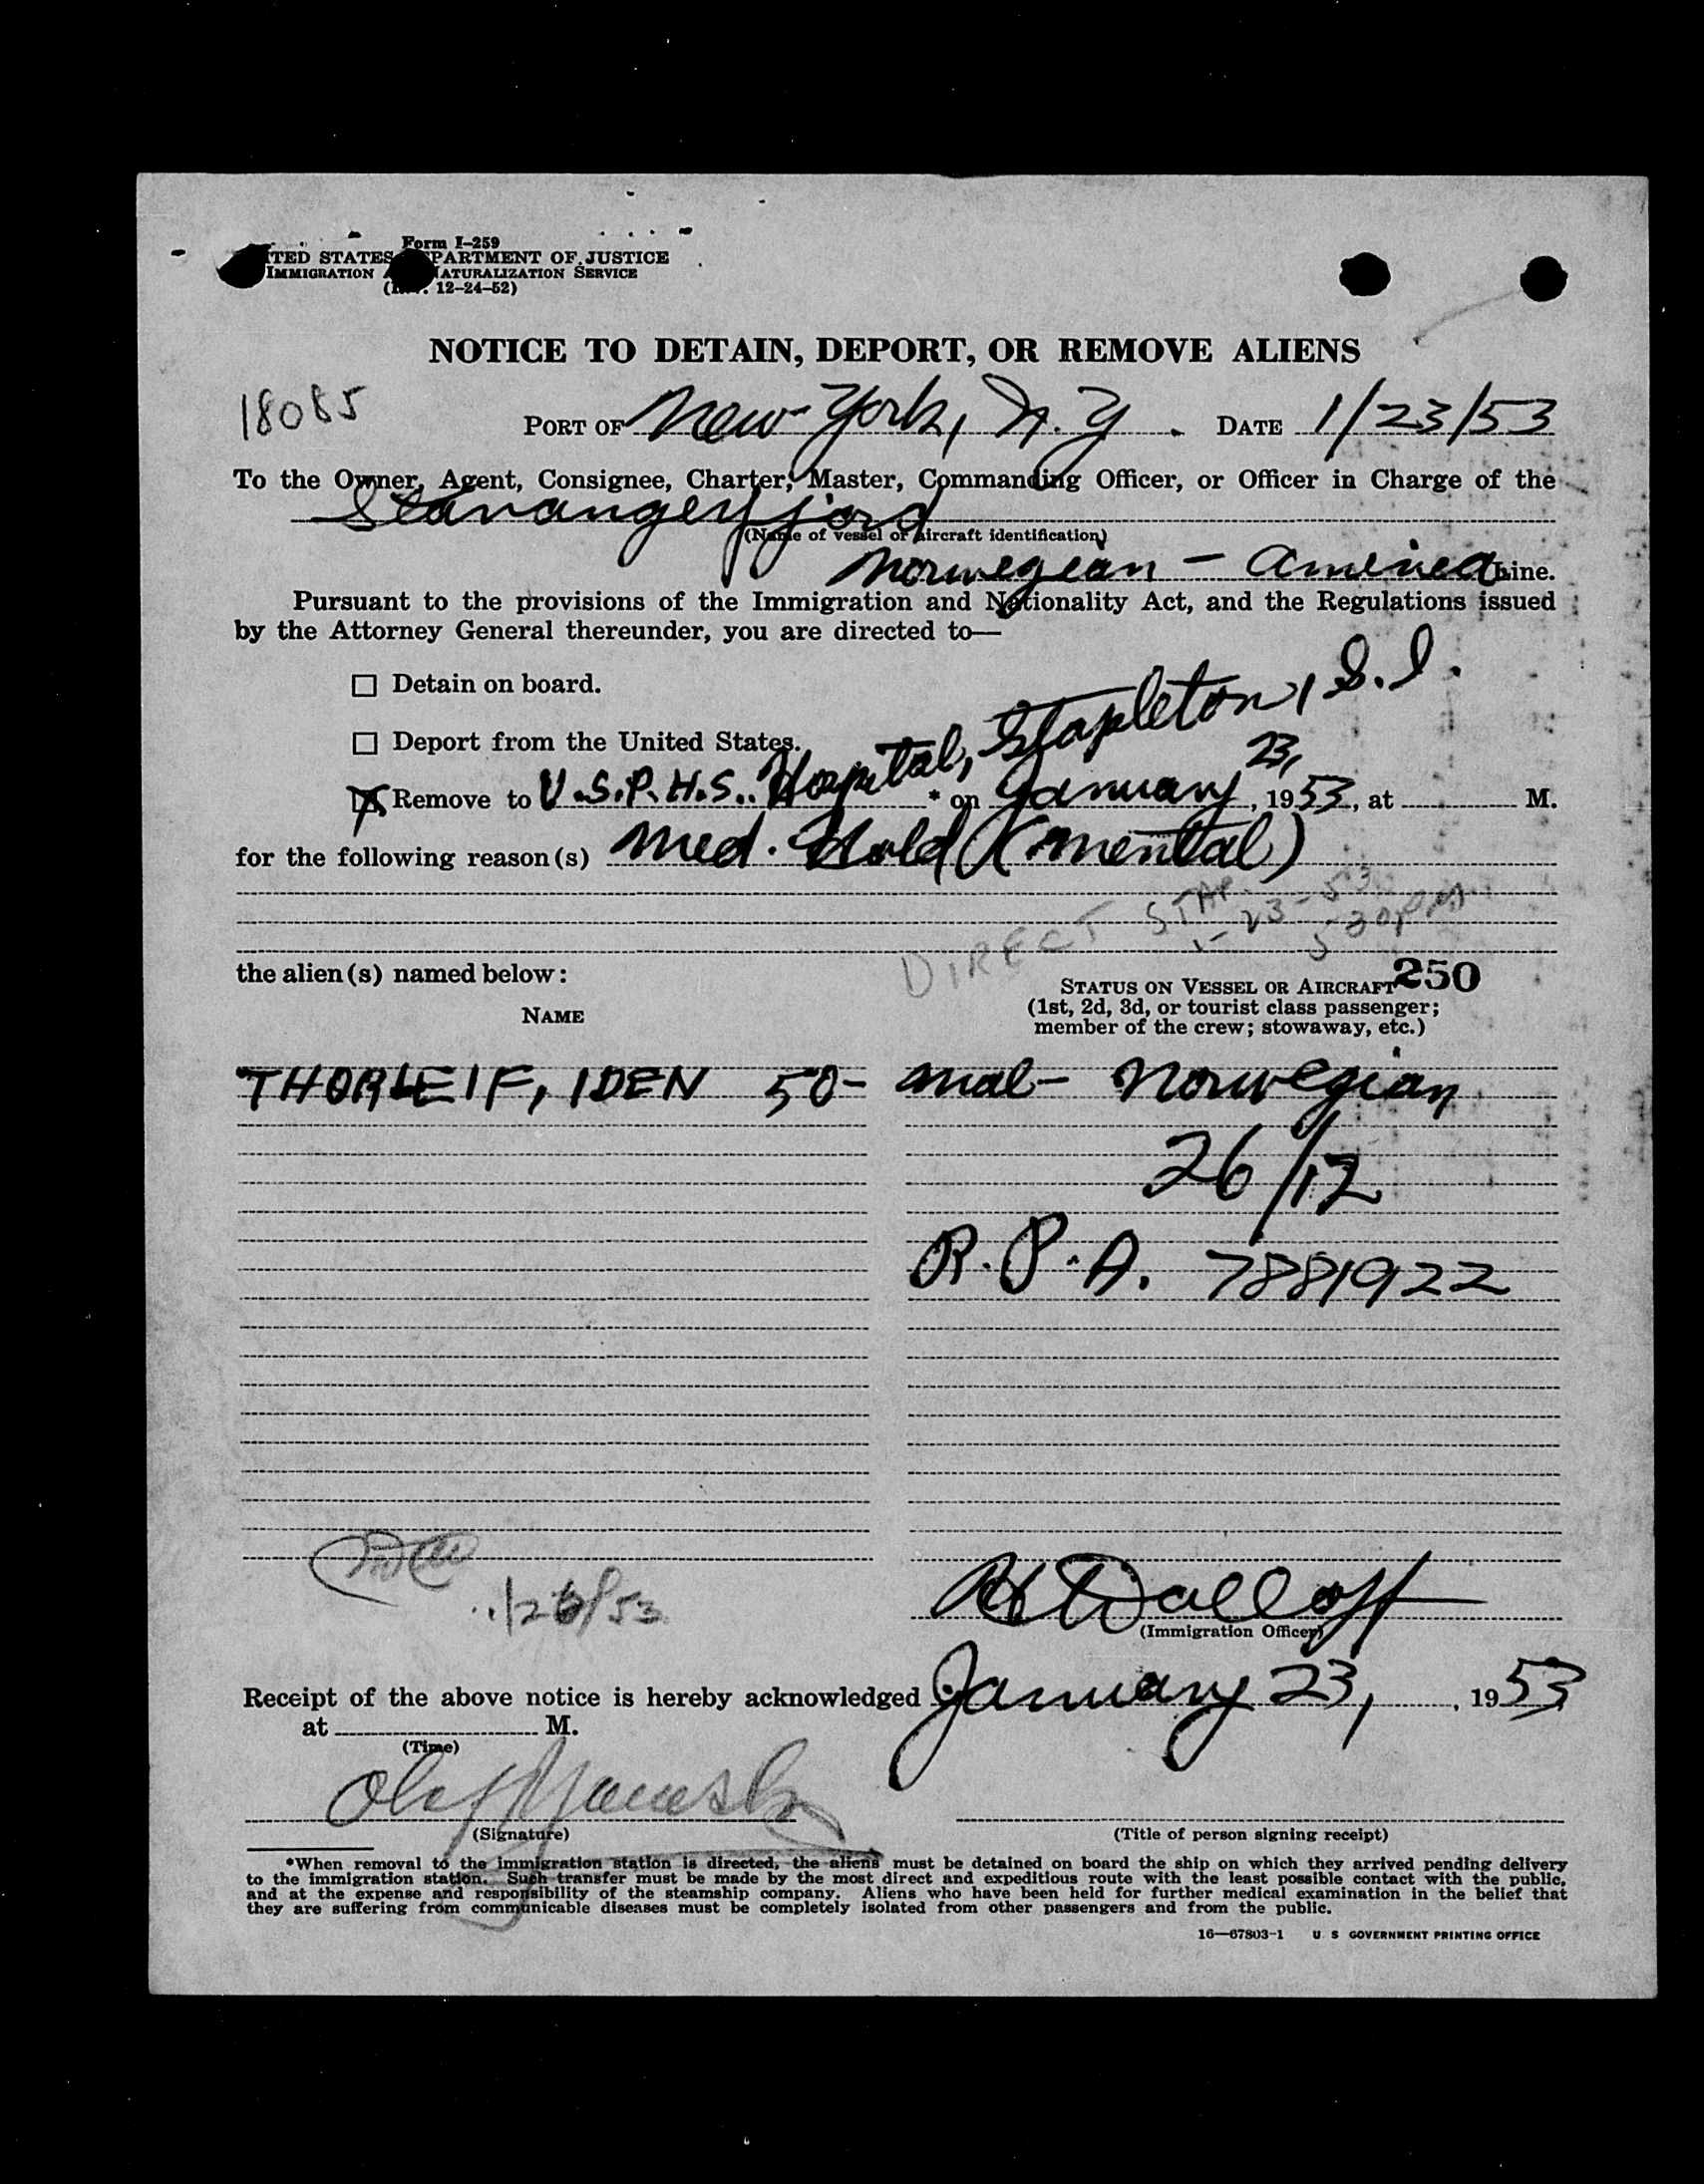 Form I-259
ITED STATES PARTMENT OF JUSTICE
IMMIGRATION A ATURALIZATION SERVICE
12-24-52)
NOTICE TO DETAIN, DEPORT, OR REMOVE ALIENS
18085
PORT OF New York, N.Y. DATE 1/23/53
To the Owner, Agent, Consignee, Charter, Master, Commanding Officer, or Officer in Charge of the
Stavangerfjord
(Name of vessel or aircraft identification)
Norwegian - America Line.
Pursuant to the provisions of the Immigration and Nationality Act, and the Regulations issued
by the Attorney General thereunder, you are directed to—
☐ Detain on board.
☐ Deport from the United States.
☒ Remove to U.S.P.H.S. Hospital, Stapleton, S.I. * on January 23, , 1953, at M.
for the following reason(s) Med. Hold (mental)
DIRECT STAP.
1-23-53
530PM
the alien(s) named below:
STATUS ON VESSEL OR AIRCRAFT 250
NAME
(1st, 2d, 3d, or tourist class passenger;
member of the crew; stowaway, etc.)
THORLEIF, IDEN 50- mal- Norwegian
26/12
R.P.A. 7881922
1/26/53
(Immigration Officer)
Receipt of the above notice is hereby acknowledged January 23, , 1953
at M.
(Time)
(Signature)
(Title of person signing receipt)
*When removal to the immigration station is directed, the aliens must be detained on board the ship on which they arrived pending delivery
to the immigration station. Such transfer must be made by the most direct and expeditious route with the least possible contact with the public,
and at the expense and responsibility of the steamship company. Aliens who have been held for further medical examination in the belief that
they are suffering from communicable diseases must be completely isolated from other passengers and from the public.
16—67803-1 U S GOVERNMENT PRINTING OFFICE